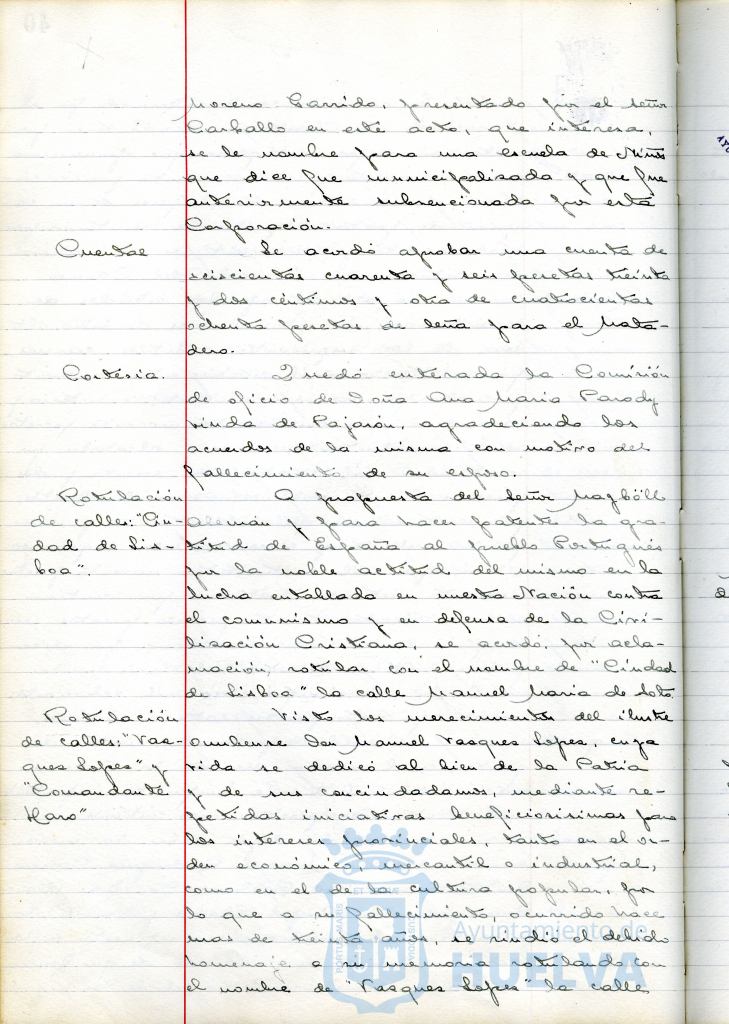 Moreno Garrido, presentado por el señor
Carballo en este acto, que interesa,
se le nombre para una escuela de Niños
que dice fue municipalizada y que fue
anteriormente subvencionada por esta
Corporación.
Cuentas
Se acordó aprobar una cuenta de
seiscientas cuarenta y seis pesetas treinta
y dos céntimos y otra de cuatrocientas
ochenta pesetas de leña para el Mata-
dero.
Cortesia.
Quedó enterada la Comisión
de oficio de Doña Ana Maria Parody
viuda de Pajarón, agradeciendo los
acuerdos de la misma con motivo del
fallecimiento de su esposo.
Rotulación
de calles: "Ciu-
dad de Lis-
boa".
A propuesta del señor Magböll
Alemán y para hacer patente la gra-
titud de España al pueblo Portugués
por la noble actitud del mismo en la
lucha entablada en nuestra Nación contra
el comunismo y en defensa de la Civi-
lización Cristiana, se acordó, por acla-
mación, rotular con el nombre de "Ciudad
de Lisboa" la calle Manuel Maria de Soto.
Rotulación
de calles: "Vas-
ques Lopes" y
"Comandante
Haro"
Visto los merecimientos del ilustre
onubense Don Manuel Vasques Lopes, cuya
vida se dedicó al bien de la Patria
y de sus conciudadanos, mediante re-
petidas iniciativas beneficiosisimas para
los intereses provinciales, tanto en el or-
den económico, mercantil o industrial,
como en el de la cultura popular, por
lo que a su fallecimiento, ocurrido hace
mas de treinta años, se rindió el debido
homenaje a su memoria rotulando con
el nombre de "Vasques Lopes" la calle
Ayuntamiento de
HUELVA